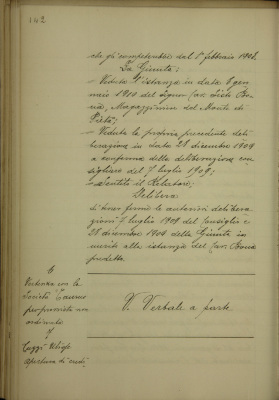 142
che gli competerebbe dal 1° febbraio 1908.
La Giunta:
- Veduta l'istanza in data 8 gen
naio 1910 del Signor Cav. Bo
nia, Magazziniere del Monte di
Pietà;
- Veduta la propria precedente deli
berazione in data 28 dicembre 1909
a conferma della deliberazione con
sigliare del 7 luglio 1909;
- Sentito il Relatore;
Delibera
di tener ferme le anteriori delibera
zioni 7 luglio 1909 del Consiglio e
28 dicembre 1909 della Giunta in
merito alla istanza del Cav. Bonia
predetta.
6
Vertenza con la
Società
per
ordinato
7
apertura di credi
V. Verbale a parte